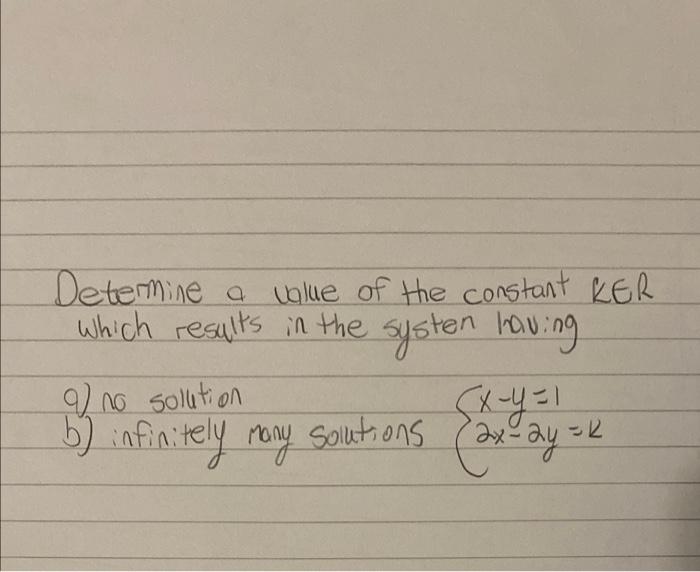 Determine a value of the constant k∈R
which results in the systen having
a) no solution
b) infinitely many solutions
{x-y=1
2x-2y=k